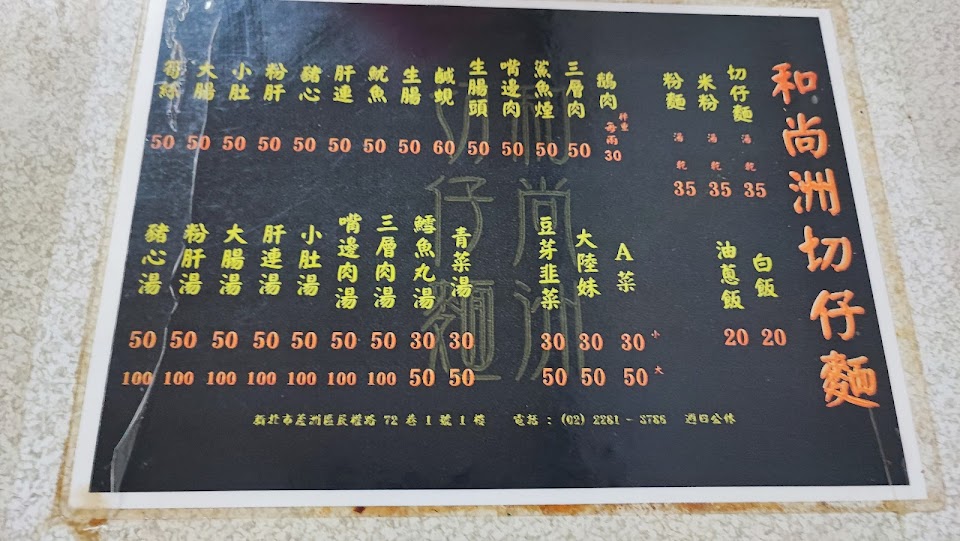 和尚洲切仔麵
切仔麵 湯 乾 35
米粉 湯 乾 35
粉麵 湯 乾 35
鵝肉 秤重 每兩 30
三層肉 50
鯊魚煙 50
嘴邊肉 50
生腸頭 50
鹹蜆 60
生腸 50
魷魚 50
肝連 50
豬心 50
粉肝 50
小肚 50
大腸 50
筍絲 50
白飯 20
油蔥飯 20
A菜 30小 50大
大陸妹 30 50
豆芽韭菜 30 50
青菜湯 30 50
鱈魚丸湯 30 50
三層肉湯 50 100
嘴邊肉湯 50 100
小肚湯 50 100
肝連湯 50 100
大腸湯 50 100
粉肝湯 50 100
豬心湯 50 100
和尚洲
切仔麵
新北市蘆洲區民權路 72 巷 1 號 1 樓 電話:(02) 2281 - 3786 週日公休